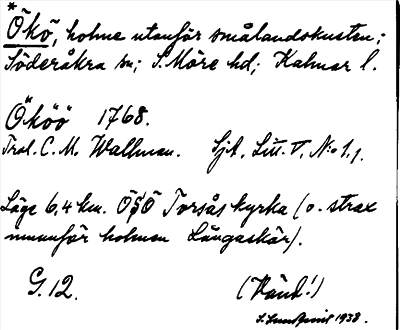 *
Ökö, holme utanför smålandskusten;
Söderåkra sn; S. Möre hd; Kalmar l.
Ököö 1768.
Tral. C. M. Wallman. Sjk, Litt. V, No 1, 1.
Läge 6,4 km. ÖSÖ Torsås kyrka (o. strax
innanför holmen Långaskär).
G. 12. (Känd!)
1938.